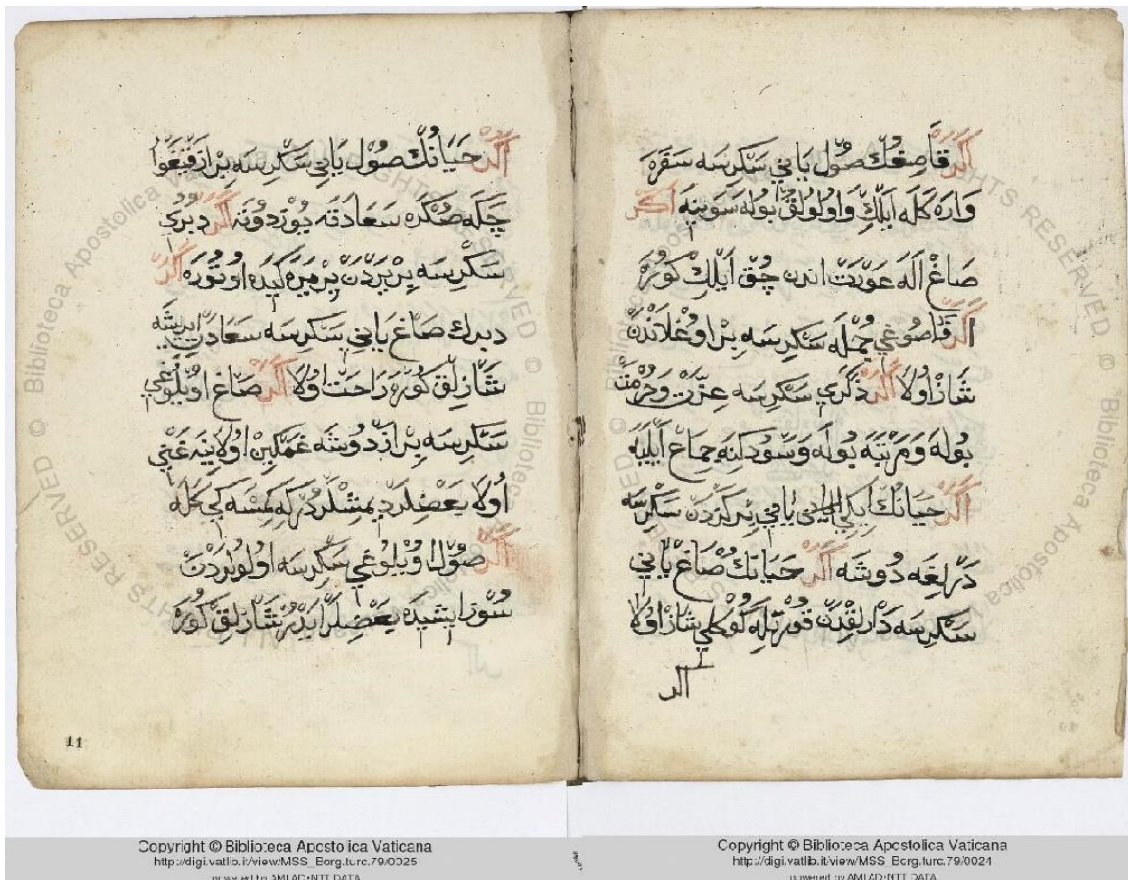 اكر قاصغك صول يانى سكرسه سفره
واره كله ايلك واولولق بوله سوينه اكر
صاغ اله عورت اندن چوق ايلك كوره
اكر قاصوغى جمله سكرسه بر اوغلاندن
شاز اولا اكر ذكرى سكرسه عزت وحرمت
بوله ومرتبه بوله وسودكنه جماع ايليه
اكر حياتك ايكى يانى بركزدن سكرسه
درلغه دوشه اكر حياتك صاغ يانى
سكرسه دارلقدن قورتله كوكلى شاز اولا
اكر
اكر حياتك صول يانى سكرسه براز قيغو
چكه صكره سعادته يوز دونه اكر دبرى
سكرسه بر يردن بر يره كيده اوتوره اكر
دبرك صاغ يانى سكرسه سعادت ايرشه
شازلق كوره راحت اولا اكر صاغ اويلوغى
سكرسه براز دوشه غمكين اولا ينه غنى
اولا بعضلر ديمشلردركه كمسه كى كله
اكر صول اويلوغى سكرسه اولولردن
سوز ايشيده بعضلر ايدر شازلق كوره
11
Copyright © Biblioteca Apostolica Vaticana
http://digi.vatlib.it/view/MSS_Borg.turc.79/0025
powered by AMLAD-NTT DATA
Copyright © Biblioteca Apostolica Vaticana
http://digi.vatlib.it/view/MSS_Borg.turc.79/0024
powered by AMLAD-NTT DATA